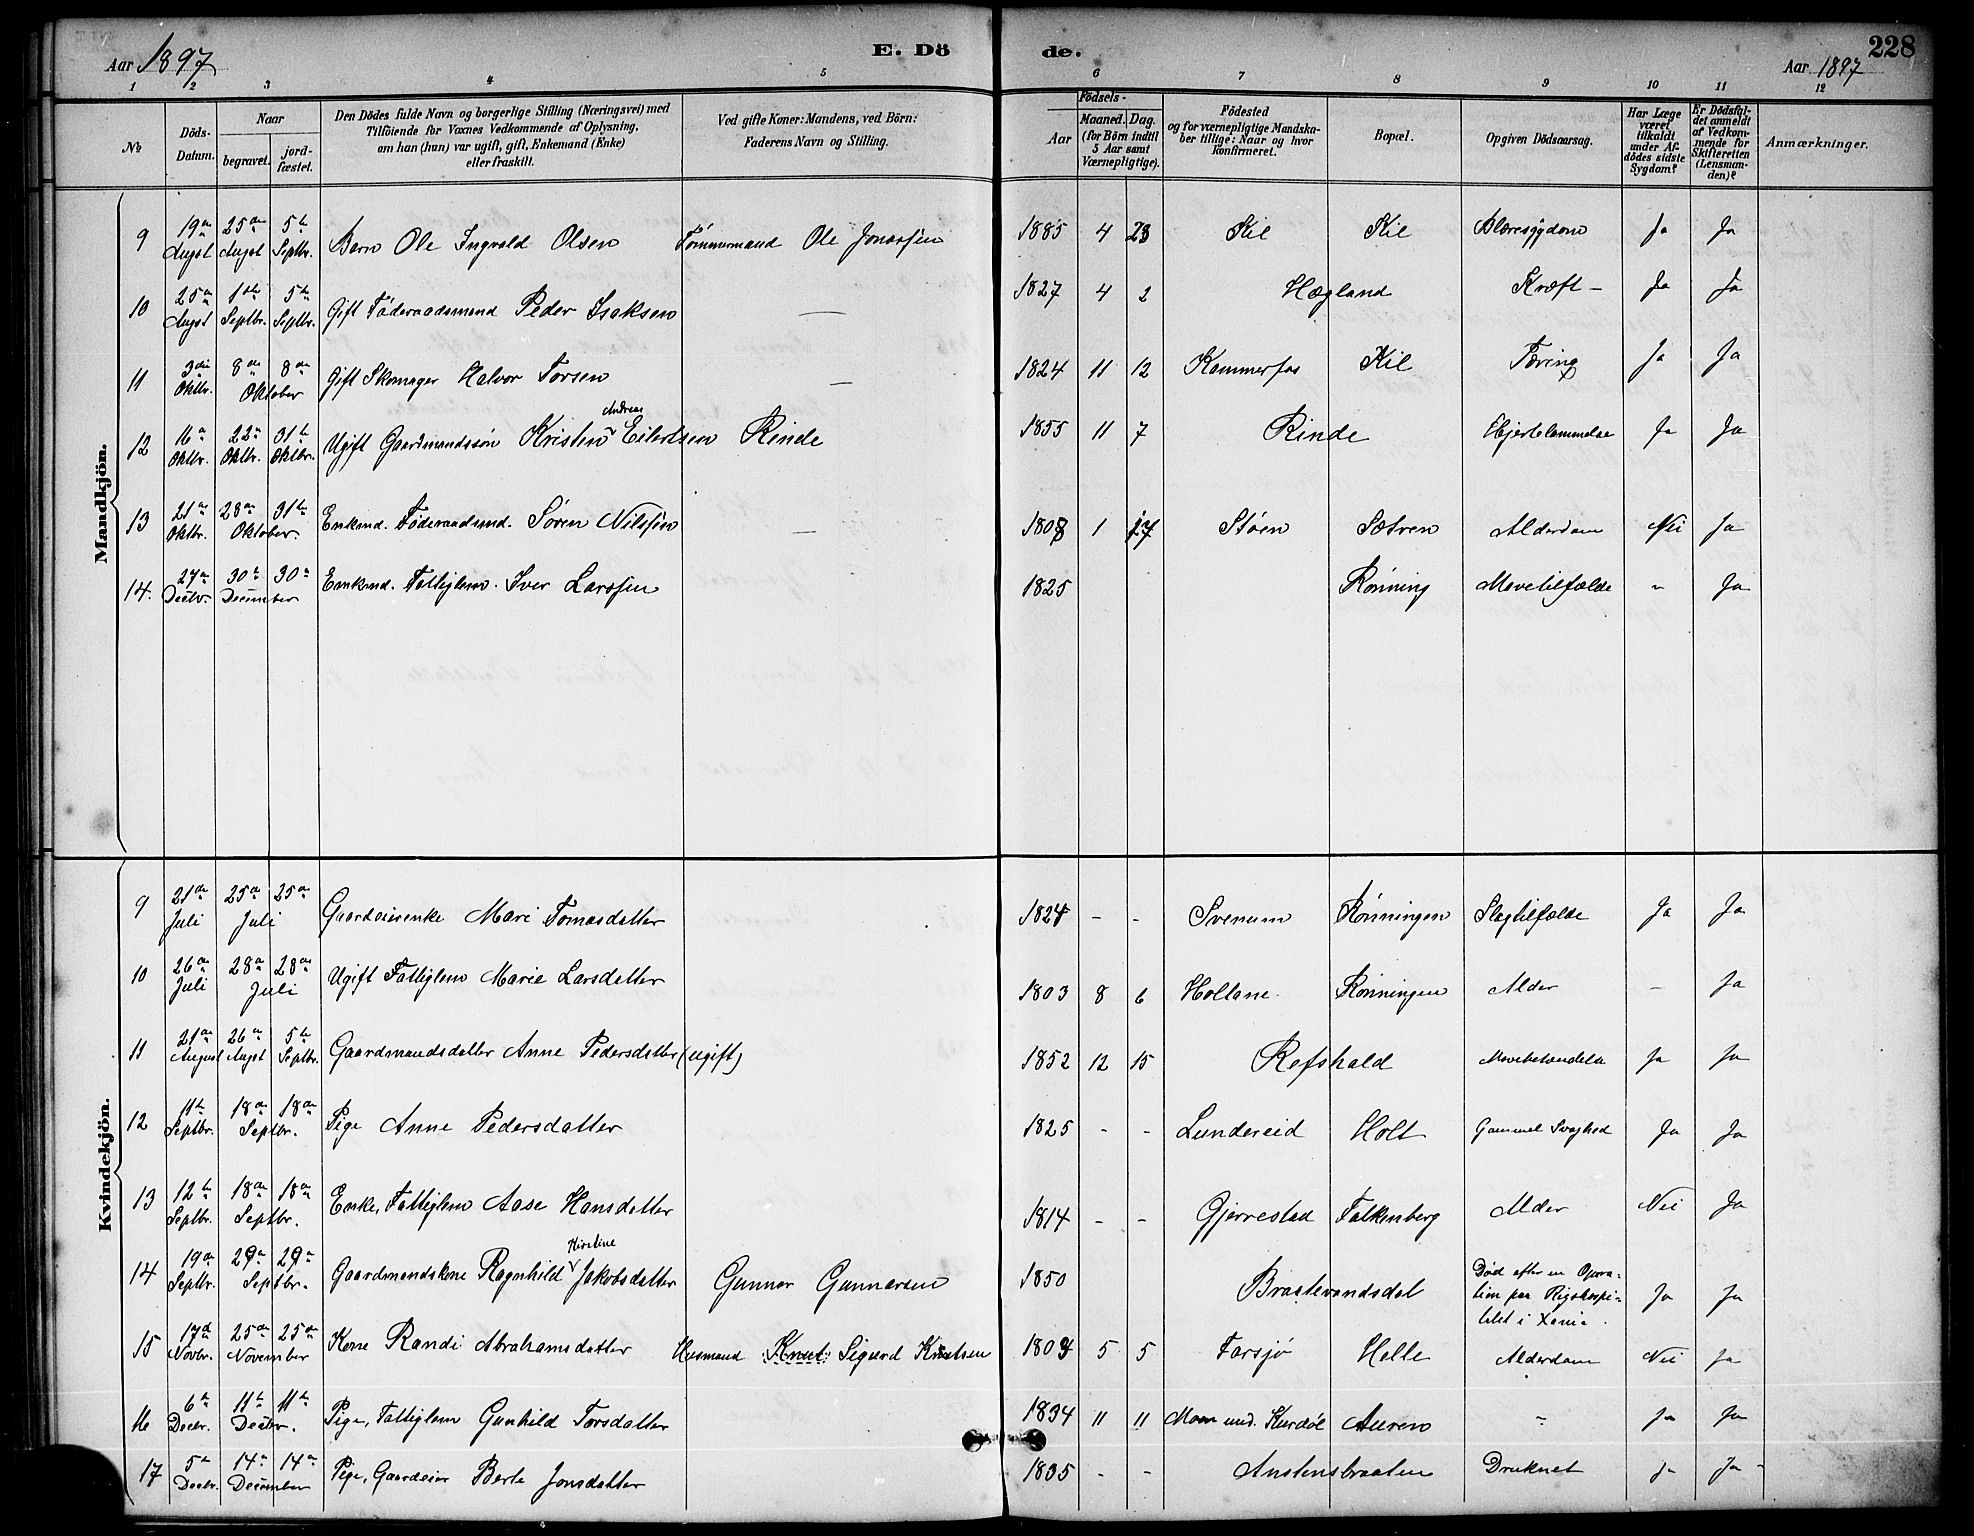 Aar 1897
E. Dö
de.
Aar 1897
228
1 2 3 4 5 6 7 8 9 10 11 12
No
Döds-Datum.
Naar
begravet.
jord-fæstet.
Den Dödes fulde Navn og borgerlige Stilling (Næringsvei) med
Tilföiende for Voxnes Vedkommende af Oplysning,
om han (han) var ugift, gift, Enkemand (Enke)
eller fraskilt.
Ved gifte Koner: Mandens, ved Börn:
Faderens Navn og Stilling.
Födsels-
Aar
Maaned.
Dag.
(for Börn indtil
5 Aar samt
Værnepligtige).
Födested
og for værnepligtige Mandska-
ber tillige: Naar og hvor
konfirmeret.
Bopæl.
Opgiven Dödsaarsag.
Har Læge
været
tilkaldt
under Af-
dödes sidste
Sygdom?
Er Dödsfal-
det anmeldt
af Vedkom-
mende for
Skifteretten
(Lensman-
den)?
Anmærkninger.
Mandkjön.
9 19de Augst 25de Augst 5te Septbr. Barn Ole Ingvald Olsen Tømmermand Ole Jonassen 1885 4 23 Kil Kil Blæresygdom Ja Ja
10 25de Augst 1ste Septbr. 5te Septbr. Gift Føderaadsmand Peder Isaksen — 1827 4 2 Hægland Kræft – Ja Ja
11 3die Oktbr. 8de 8de Oktober Gift Skomager Halvor Torsen — 1824 11 12 Kammerfos Kil Tæring Ja Ja
12 16de Oktbr. 22de Oktbr. 31te Oktbr. Ugift Gaardmandssøn Kristen Andreas Eilertsen Rinde 1855 11 7 Rinde Hjertelammelse Ja Ja
13 21de Oktbr. 28de 31te Oktober. Enkmd. Føderaadsmd. Søren Nilssen — 1808 1 17 Støen Sætren Alderdom Nei Ja
14. 27de Decbr. 30te 30te December Enkmd. Fattiglem. Iver Larssen 1825 Rønning Mavetilfælde – Ja
Kvindekjön.
9 21de Juli 25de 25de Juli Gaardeierenke Mari Tomasdatter 1824 - - Svenum Rønningen Slagtilfælde Ja Ja
10 26de Juli 28de 28de Juli Ugift Fattiglem Marie Larsdatter 1803 8 6 Hollane Rønningen Alder – Ja
11 21de August 26de Augst 5te Septbr. Gaardmandsdatter Anne Pedersdatter (ugift) 1852 12 15 Refshald Ja Ja
12 11te Septbr. 18de 18de Septbr. Pige Anne Pedersdatter 1825 - - Lundereid Holt Gammel Svaghed Ja Ja
13 12te Septbr. 18de 18de Septbr. Enke, Fattiglem Aase Hansdatter 1814 - - Gjerrestad Falkenberg Alder Nei Ja
14 19de Septbr. 29de 29de Septbr. Gaardmandskone Ragnhild Kirstine Jakobsdatter Gunnar Gunnarsen 1850 Braatevandsdal Død efter en Opera-
tion paa Rigshospi-
talet i Xania. Ja Ja
15 17de Novbr. 25de 25de November Kone Randi Abrahamsdatter Husmand Knut Sigurd Knutsen 1804 5 5 Farsjø Helle Alderdom Nei Ja
16 6te Decbr. 11te 11te Decbr. Pige, Fattiglem Gunhild Torsdatter 1834 11 11 Moen und. Kurdøl Auren – Ja Ja
17 5te Decbr. 14de 14de December Pige, Gaardeier Berte Jonsdatter 1835 - - Anstensbraaten Druknet Ja Ja